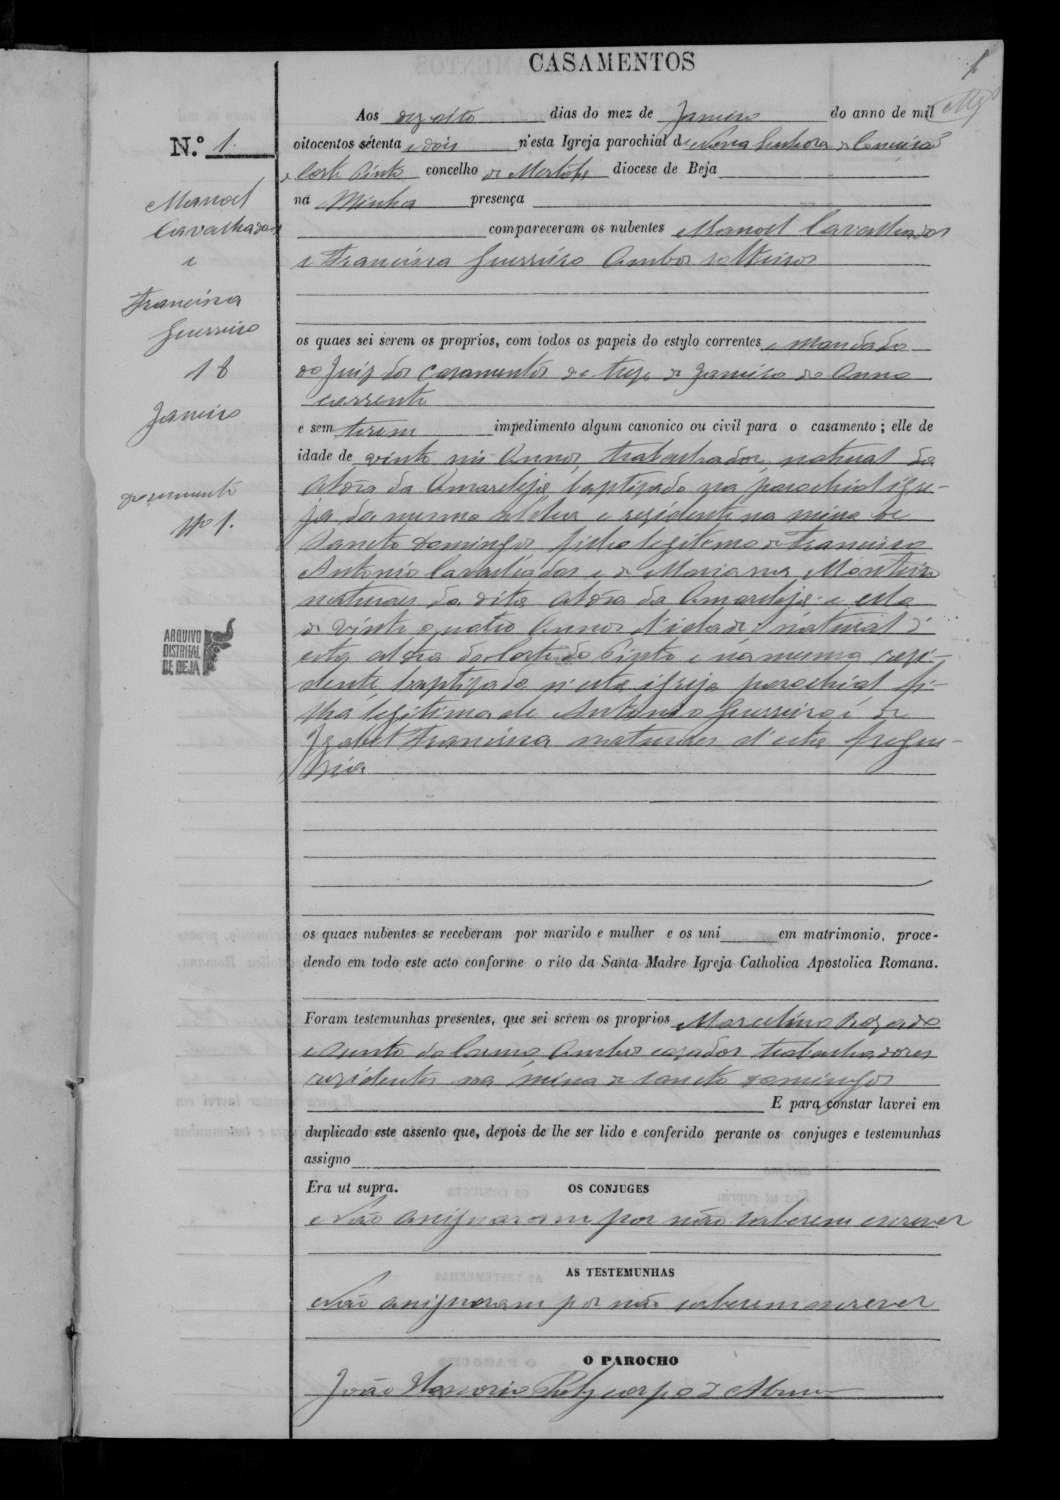 CASAMENTOS
1
N.º 1.
Manoel
Cavalhadas
e
Francisca
Guerreiro
18
Janeiro
documento
Nº 1.
ARQUIVO
DISTRITAL
DE BEJA
Aos dezoito dias do mez de Janeiro do anno de mil
oitocentos sétenta e dois n'esta Igreja parochial de Nossa Senhora da Conceição
de Corte Pinto concelho de Mertola diocese de Beja
na Minha presença
compareceram os nubentes Manoel Cavalhadas
e Francisca Guerreiro Ambos solteiros
os quaes sei serem os proprios, com todos os papeis do estylo correntes e mandado
do Juiz dos casamentos de treze de Janeiro do Anno
corrente
e sem terem impedimento algum canonico ou civil para o casamento; elle de
idade de vinte seis Annos, trabalhador, natural da
Aldêa da Amareleja, baptizado na parochial igre-
ja da mesma Aldeia e rezidente na mina de
Sancto Domingos filho legitemo de Francisco
Antonio Cavalhadas e de Marianna Monteiro
naturaes da dita Aldêa da Amareleja e ella
de vinte quatro Annos d'idade natural d'
esta aldêa de Corte do Pinto e na mesma rezi-
dente baptizada n'esta igreja parochial fi-
lha legitima de Antonio Guerreiro e de
Izabel Francisca naturaes d'esta fregue-
zia
os quaes nubentes se receberam por marido e mulher e os uni em matrimonio, proce-
dendo em todo este acto conforme o rito da Santa Madre Igreja Catholica Apostolica Romana.
Foram testemunhas presentes, que sei serem os proprios Marcelino Rozado
e Bento do Carmo Ambos cazados trabalhadores
rezidentes na mina de Sancto Domingos
E para constar lavrei em
duplicado este assento que, depois de lhe ser lido e conferido perante os conjuges e testemunhas
assigno
Era ut supra. OS CONJUGES
Não assignaram por não saberem escrever
AS TESTEMUNHAS
Não assignaram por não saberem escrever
O PAROCHO
João Polycarpo d